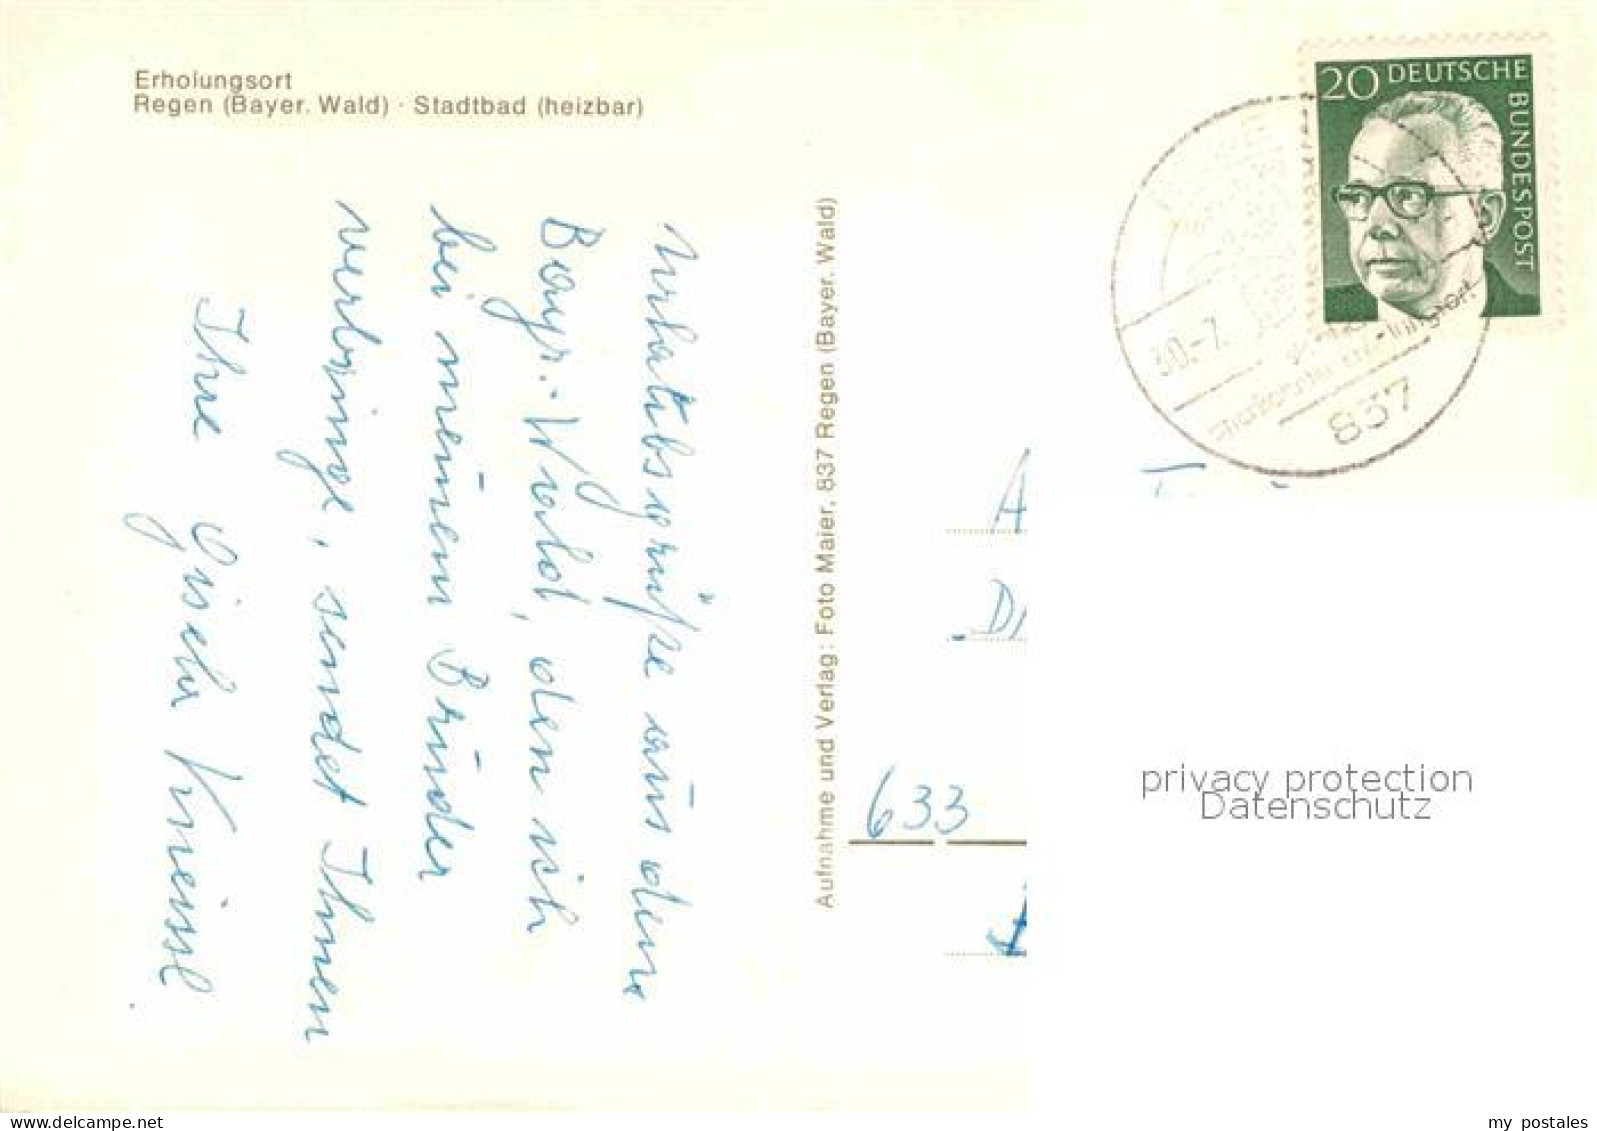 Erholungsort
Regen (Bayer. Wald) · Stadtbad (heizbar)
Urlaubsgrüße aus dem
Bayr.-Wald, den ich
bei meinem Bruder
verbringe, sendet Ihnen
Ihre Gisela Kneissl
Aufnahme und Verlag: Foto Maier, 837 Regen (Bayer. Wald)
20 DEUTSCHE
BUNDESPOST
30.-7.
837
A
Di
633
privacy protection
Datenschutz
delcampe.net
my_postales